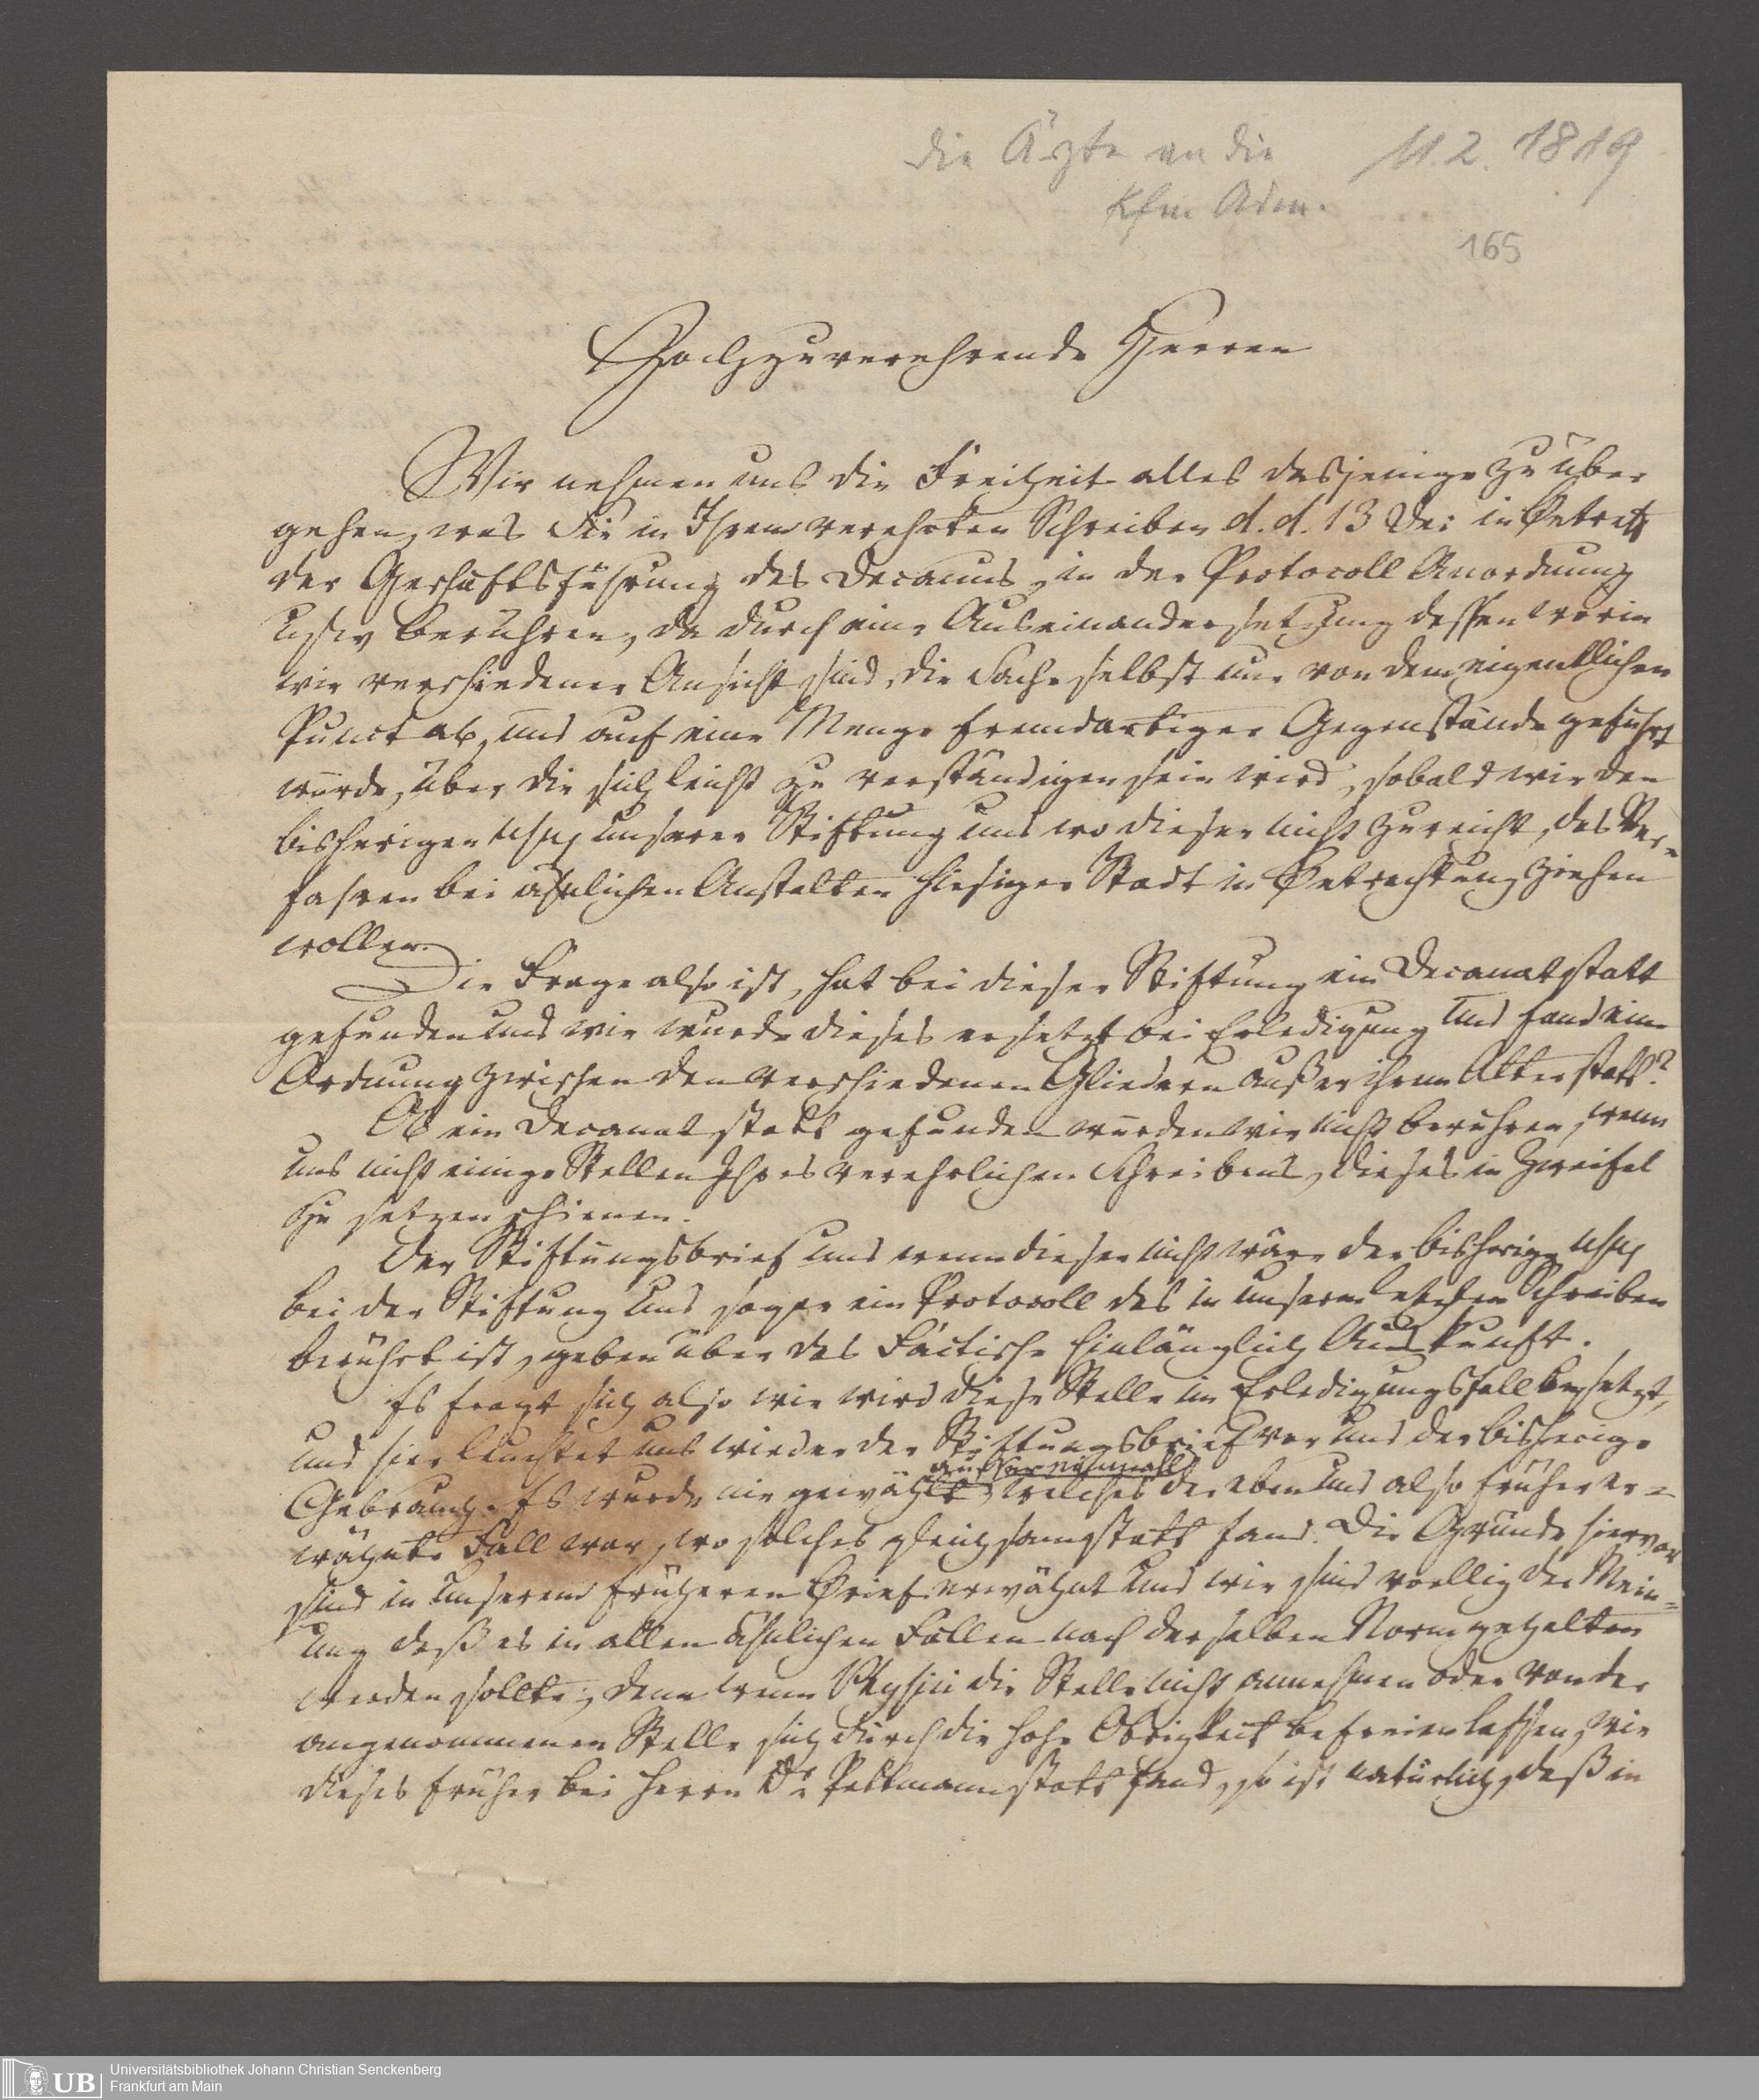 die Ärzte an die 11.2.1819
Kfm Adm.
165
Hochzuverehrende Herren
Wir nehmen uns die Freiheit alles dasjenige zu über
gehen, was Sie in Ihrem verehrten Schreiben d. d. 13 De: in Betreff
der Geschäftsführung des Decanus, in der Protocoll Anordnung
usw berühren, da durch eine Auseinandersetzung dessen worin
wir verschiedener Ansicht sind, die Sache selbst nur von dem eigentlichen
Punct ab, und auf eine Menge fremdartiger Gegenstände geführt
würde, über die sich leicht zu verständigen sein wird, sobald wir den
bisherigen Usus unserer Stiftung und wo dieser nicht zureicht, das Ver-
fahren bei ähnlichen Anstalten hiesiger Stadt in Betrachtung ziehen
wollen.
Die Frage also ist, hat bei dieser Stiftung ein Decanat statt
gefunden und wie wurde dieses ersetzt bei Erledigung und fand eine
Ordnung zwischen den verschiedenen Gliedern außer ihrem Alter statt?
Ob ein Decanat statt gefunden würden wir nicht berühren, wenn
uns nicht einige Stellen Ihres verehrlichen Schreibens, dieses in Zweifel
zu setzen schienen.
Der Stiftungsbrief und wenn dieser nicht wäre der bisherige Usus
bei der Stiftung und sogar ein Protocoll das in unserem letzten Schreiben
berührt ist, geben über das Factische hinlänglich Auskunft.
Es fragt sich also wie wird diese Stelle im Erledigungsfall besetzt,
und hier leuchtet uns wieder der Stiftungsbrief vor und der bisherige
außer einmahl
Gebrauch. Es wurde nie gewählt, welches der eben und also früher er-
wähnte Fall war, wo solches gleichsam statt fand. Die Gründe hiervon
sind in unserem früheren Brief erwähnt und wir sind voellig der Mein-
ung daß es in allen ähnlichen Fällen nach derselben Norm gehalten
werden sollte; denn wenn Physici die Stelle nicht annehmen oder von der
angenommenen Stelle sich durch die hohe Obrigkeit befreien lassen, wie
dieses früher bei Herrn Dr. statt fand, so ist natürlich, daß in
UB Universitätsbibliothek Johann Christian Senckenberg
Frankfurt am Main